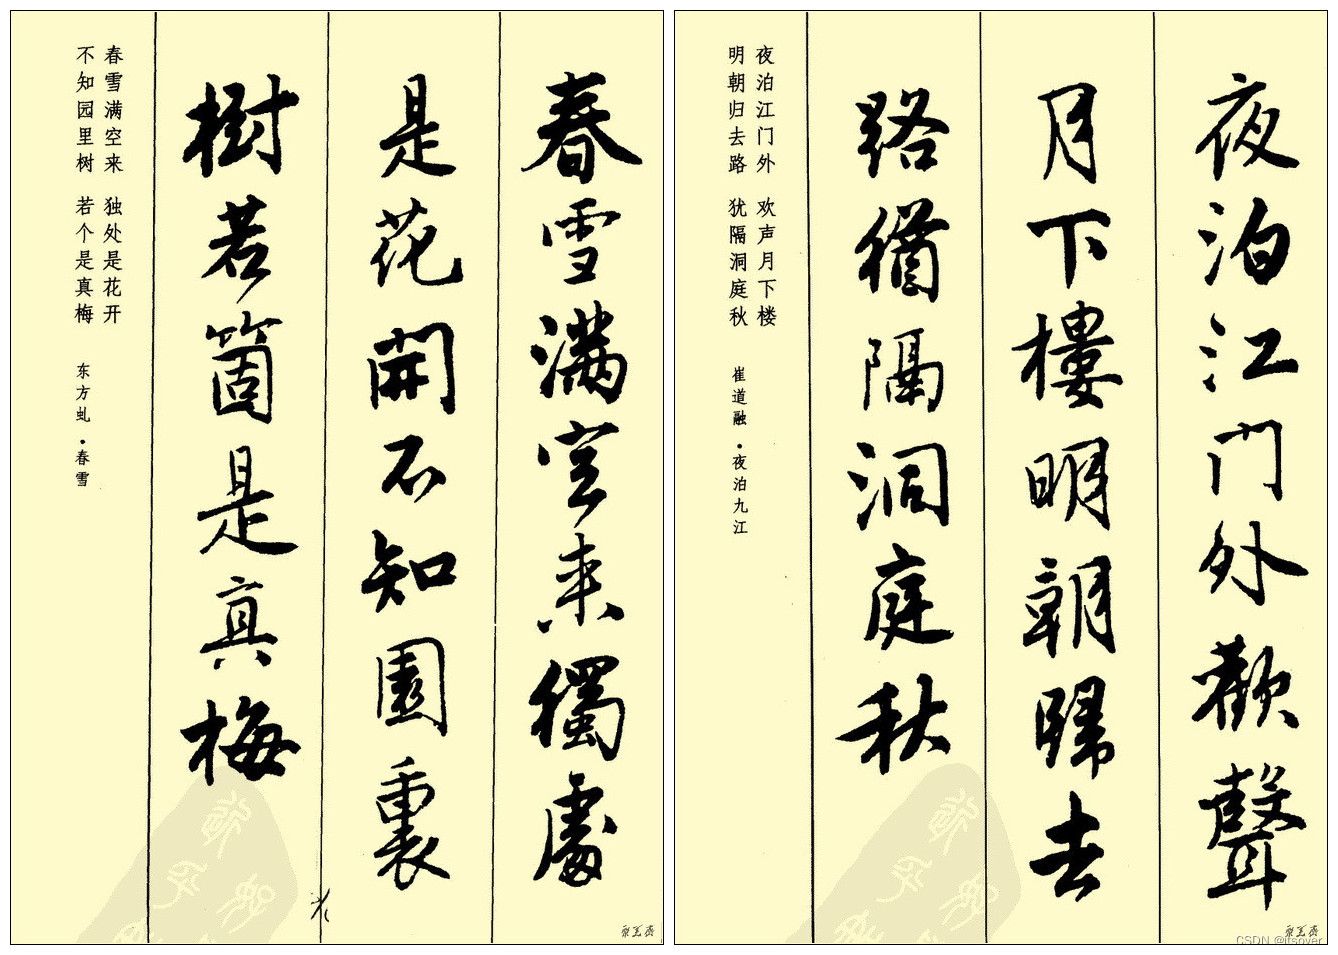 夜泊江门外歡聲
月下樓明朝歸去
路猶隔洞庭秋
夜泊江门外 欢声月下楼
明朝归去路 犹隔洞庭秋 崔道融·夜泊九江
春雪满空来獨處
是花開不知園裏
樹若箇是真梅
春雪满空来 独处是花开
不知园里树 若个是真梅 东方虬·春雪
CSDN @itsover